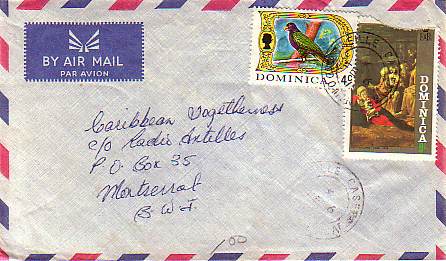 BY AIR MAIL
PAR AVION
DOMINICA
DOMINICA
Caribbean Togetherness
c/o Radio Antilles
P.O. Box 35
Montserrat
B.W.I
100